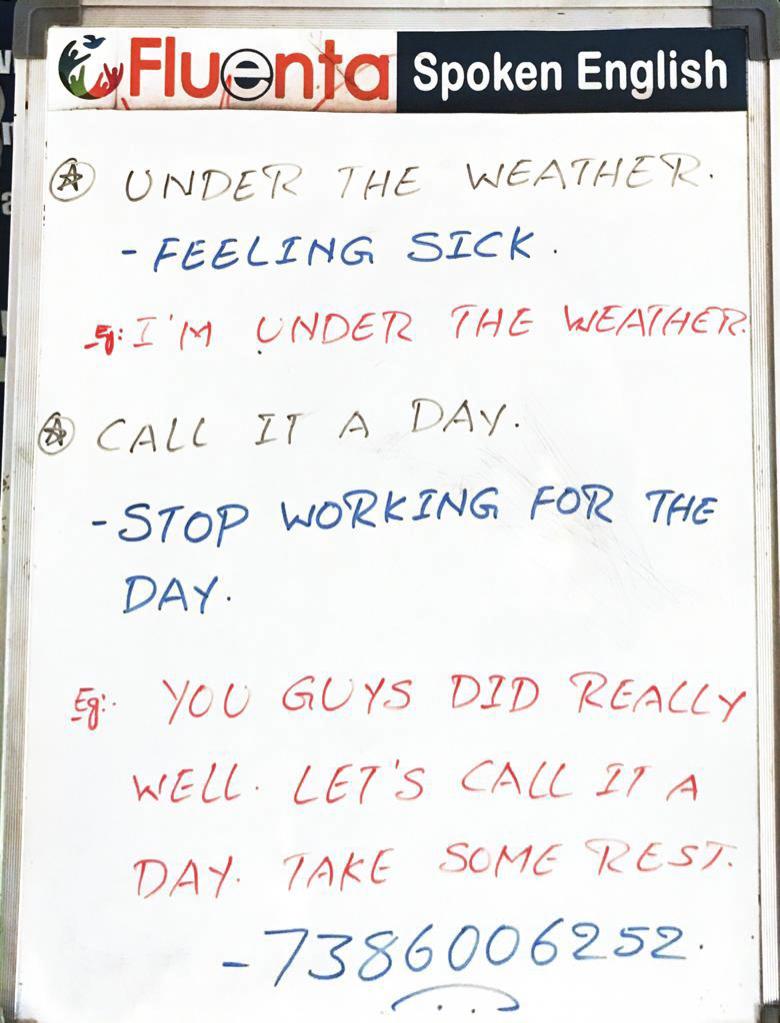 Fluenta Spoken English
UNDER THE WEATHER.
- FEELING SICK.
Eg: I'M UNDER THE WEATHER.
CALL IT A DAY.
- STOP WORKING FOR THE
DAY.
Eg:- YOU GUYS DID REALLY
WELL. LET'S CALL IT A
DAY. TAKE SOME REST.
- 7386006252.